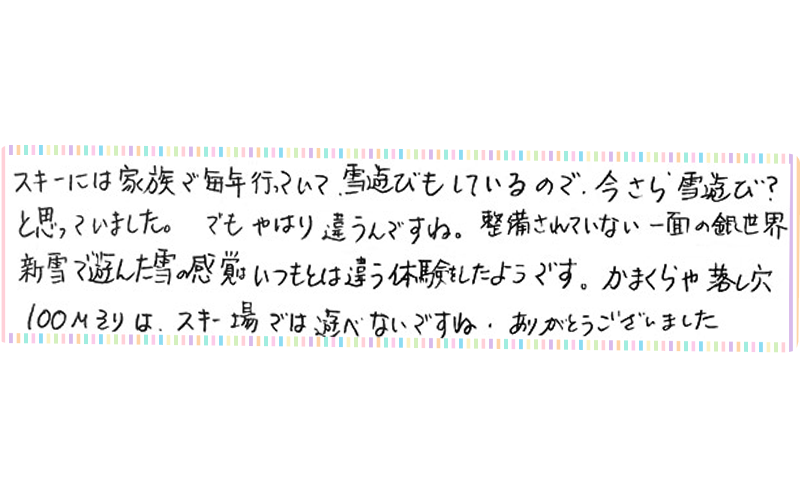 スキーには家族で毎年行っていて、雪遊びもしているので、今さら雪遊び?
と思っていました。でもやはり違うんですね。整備されていない一面の銀世界
新雪で遊んだ雪の感覚はいつもとは違う体験をしたようです。かまくらや落し穴
100Mそりは、スキー場では遊べないですね・ありがとうございました